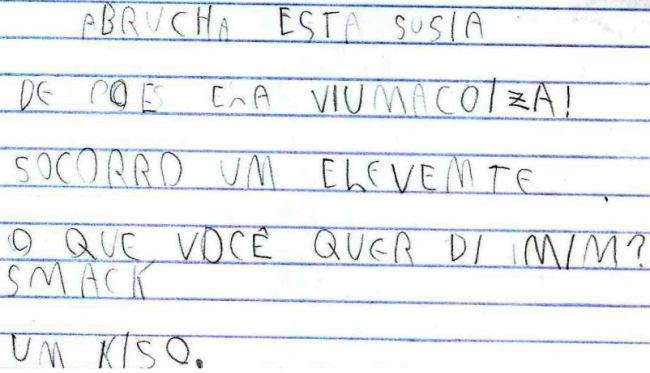 ABRUCHA ESTA SUSIA
DE POES ELA VIUMACOIZA!
SOCORRO UM ELEVEMTE
O QUE VOCÊ QUER DI MIM?
SMACK
UM KISO.